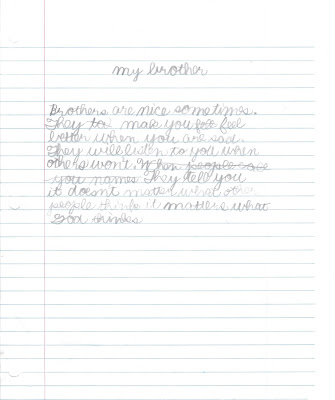 my brother
Brothers are nice sometimes.
They to make you feel feel
better when you are sad.
They will listen to you when
others won't. When people call
you names They tell you
it doesn't matter what other
people thinks it matters what
God thinks